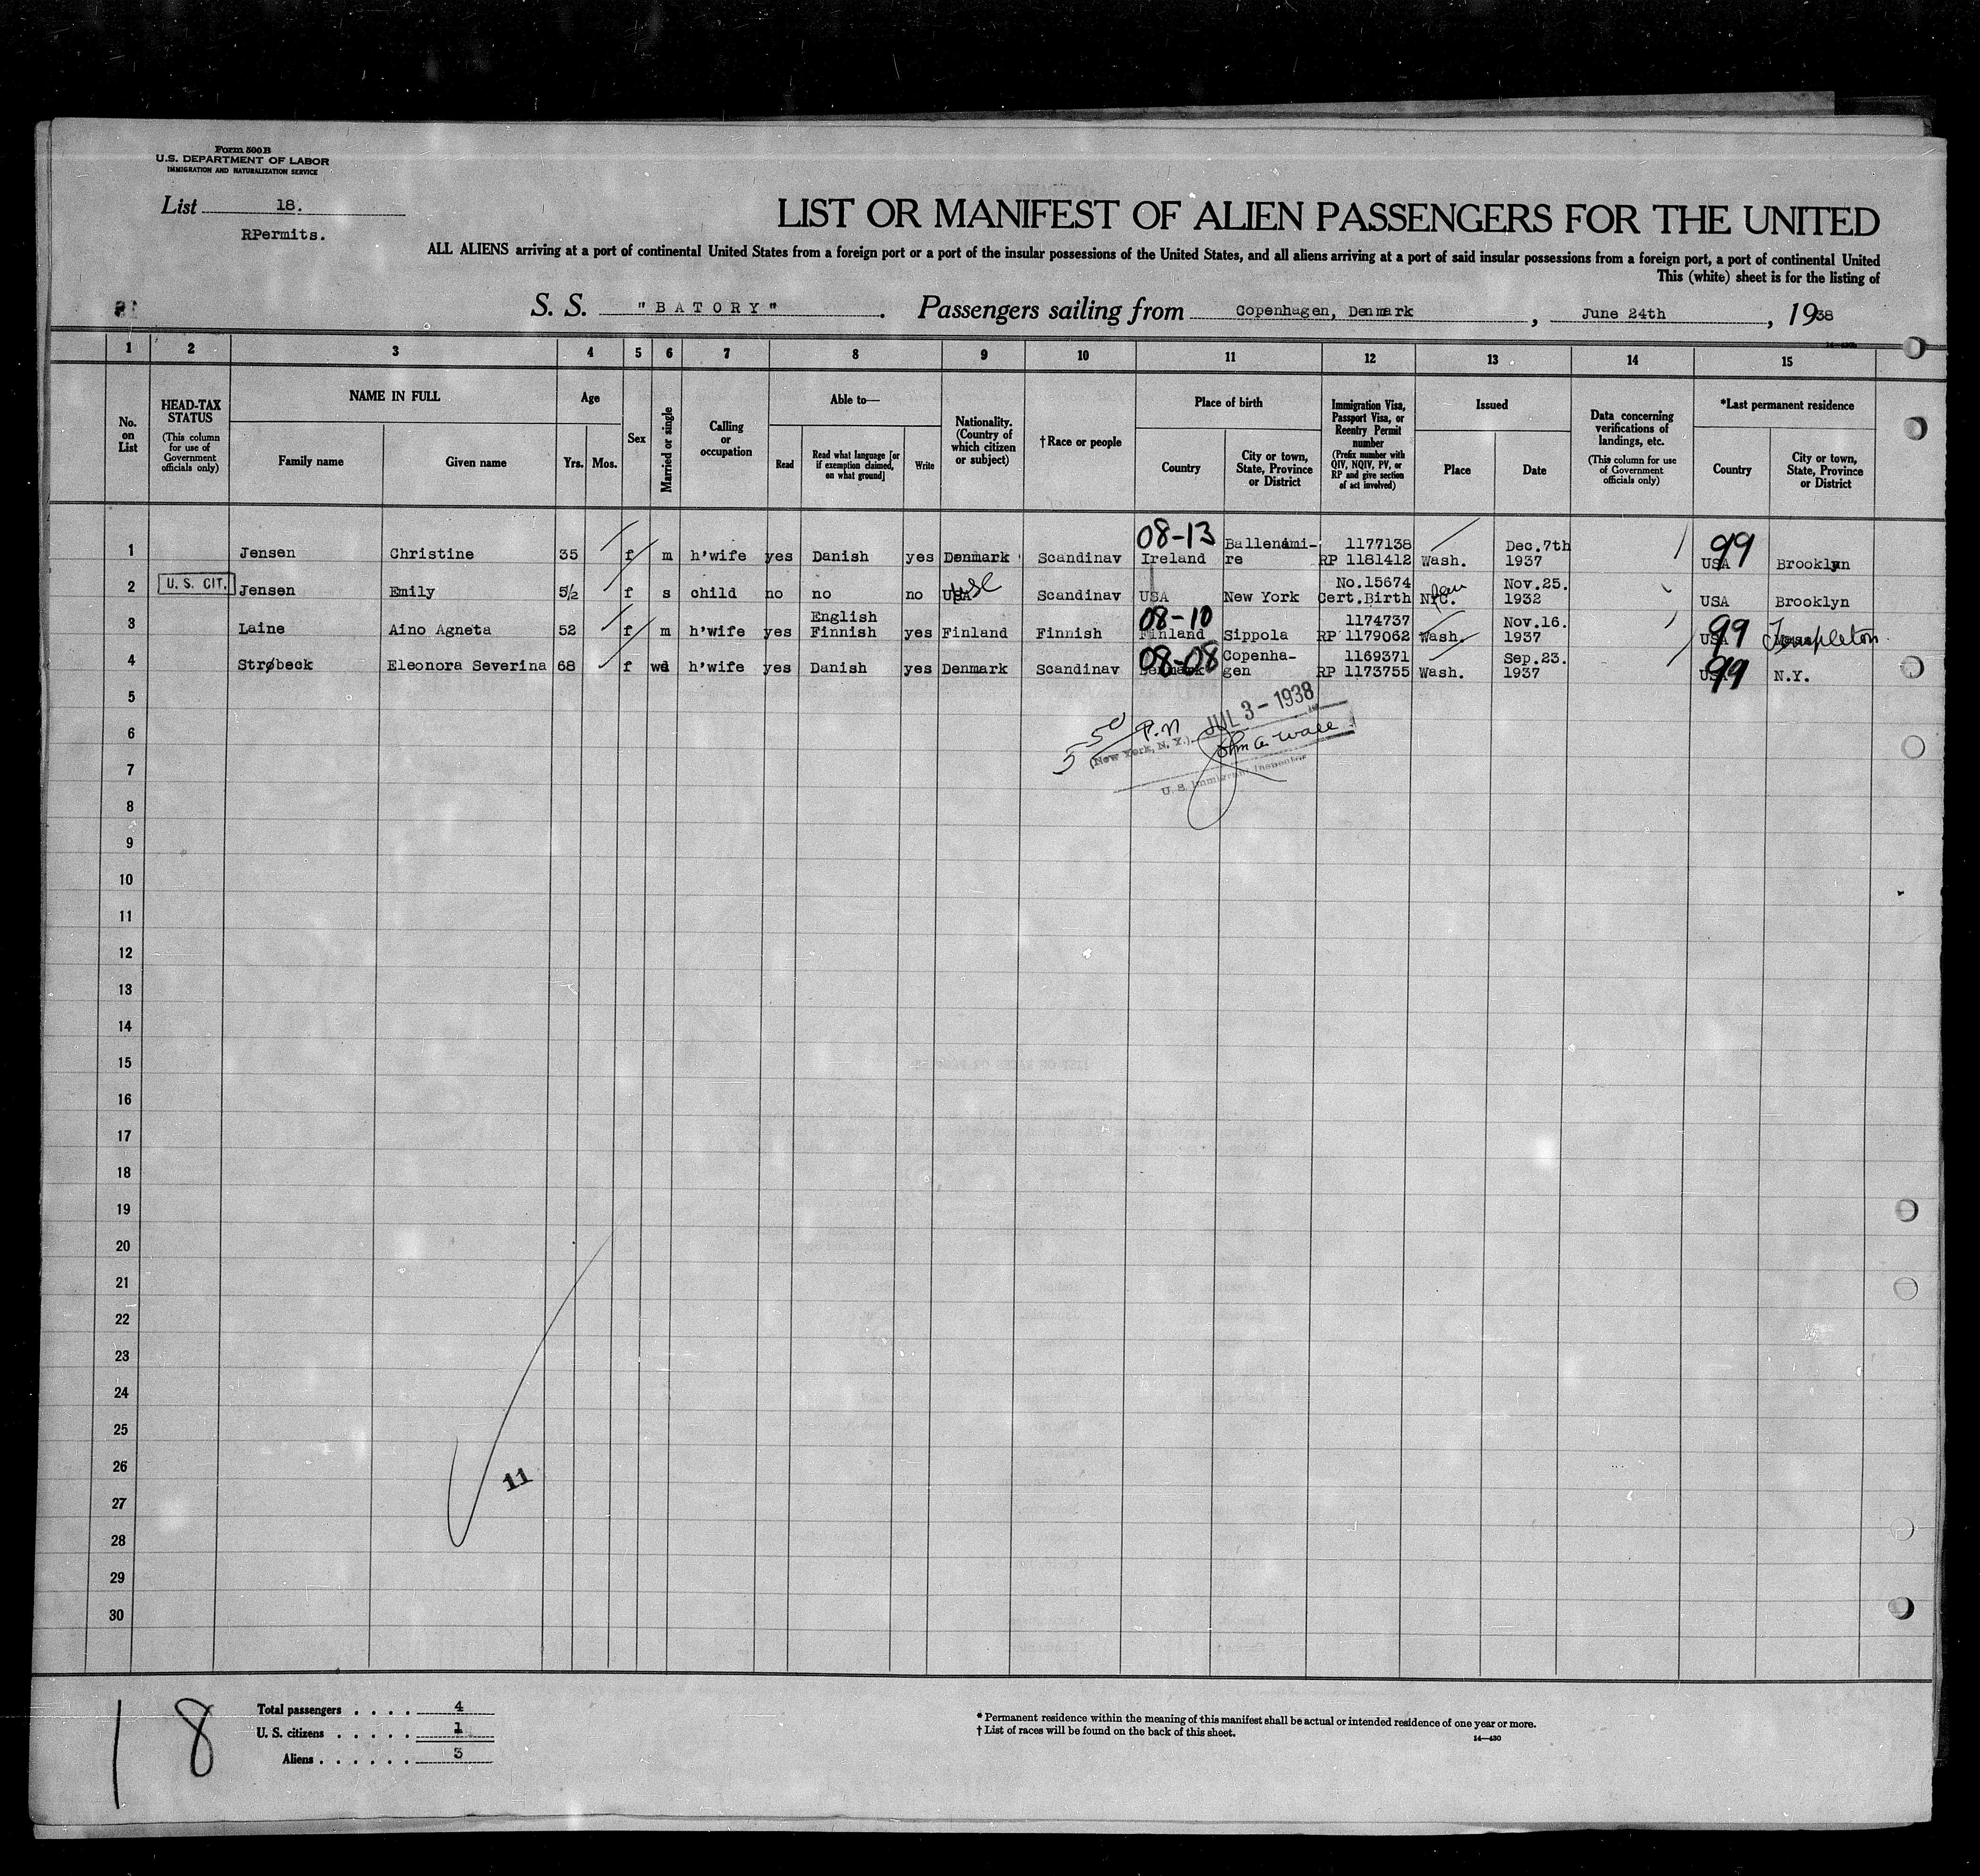 Form 500B
U.S. DEPARTMENT OF LABOR
IMMIGRATION AND NATURALIZATION SERVICE
List 18.
RPermits.
LIST OR MANIFEST OF ALIEN PASSENGERS FOR THE UNITED
ALL ALIENS arriving at a port of continental United States from a foreign port or a port of the insular possessions of the United States, and all aliens arriving at a port of said insular possessions from a foreign port, a port of continental United
This (white) sheet is for the listing of
S. S. "BATORY". Passengers sailing from Copenhagen, Denmark, June 24th, 1938
1 2 3 4 5 6 7 8 9 10 11 12 13 14 15
No. on List
HEAD-TAX STATUS
(This column for use of Government officials only)
NAME IN FULL
Family name Given name
Age
Yrs. Mos.
Sex
Married or single
Calling or occupation
Able to—
Read
Read what language [or if exemption claimed, on what ground]
Write
Nationality. (Country of which citizen or subject)
†Race or people
Place of birth
Country
City or town, State, Province or District
Immigration Visa, Passport Visa, or Reentry Permit number
(Prefix number with QIV, NQIV, PV, or RP and give section of act involved)
Issued
Place Date
Data concerning verifications of landings, etc.
(This column for use of Government officials only)
*Last permanent residence
Country
City or town, State, Province or District
08-13 Ballenami- 1177138 Dec.7th 99
1 Jensen Christine 35 f m h'wife yes Danish yes Denmark Scandinav Ireland re RP 1181412 Wash. 1937 USA Brooklyn
No.15674 Nov.25.
2 U. S. CIT. Jensen Emily 5½ f s child no no no USA Scandinav USA New York Cert.Birth NYC. 1932 USA Brooklyn
English 08-10 1174737 Nov.16. 99 Templeton
3 Laine Aino Agneta 52 f m h'wife yes Finnish yes Finland Finnish Finland Sippola RP 1179062 Wash. 1937 USA Mass.
08-08 Copenha- 1169371 Sep.23. 99
4 Strøbeck Eleonora Severina 68 f wd h'wife yes Danish yes Denmark Scandinav Denmark gen RP 1173755 Wash. 1937 USA N.Y.
5
6
7
5 50 P.M JUL 3 - 1938
(New York, N. Y.)
John A. Wall
U. S. Immigrant Inspector
8
9
10
11
12
13
14
15
16
17
18
19
20
21
22
23
24
25
26
11
27
28
29
30
18
Total passengers . . . . 4
U. S. citizens . . . . . 1
Aliens . . . . . . 3
* Permanent residence within the meaning of this manifest shall be actual or intended residence of one year or more.
† List of races will be found on the back of this sheet.
14—430